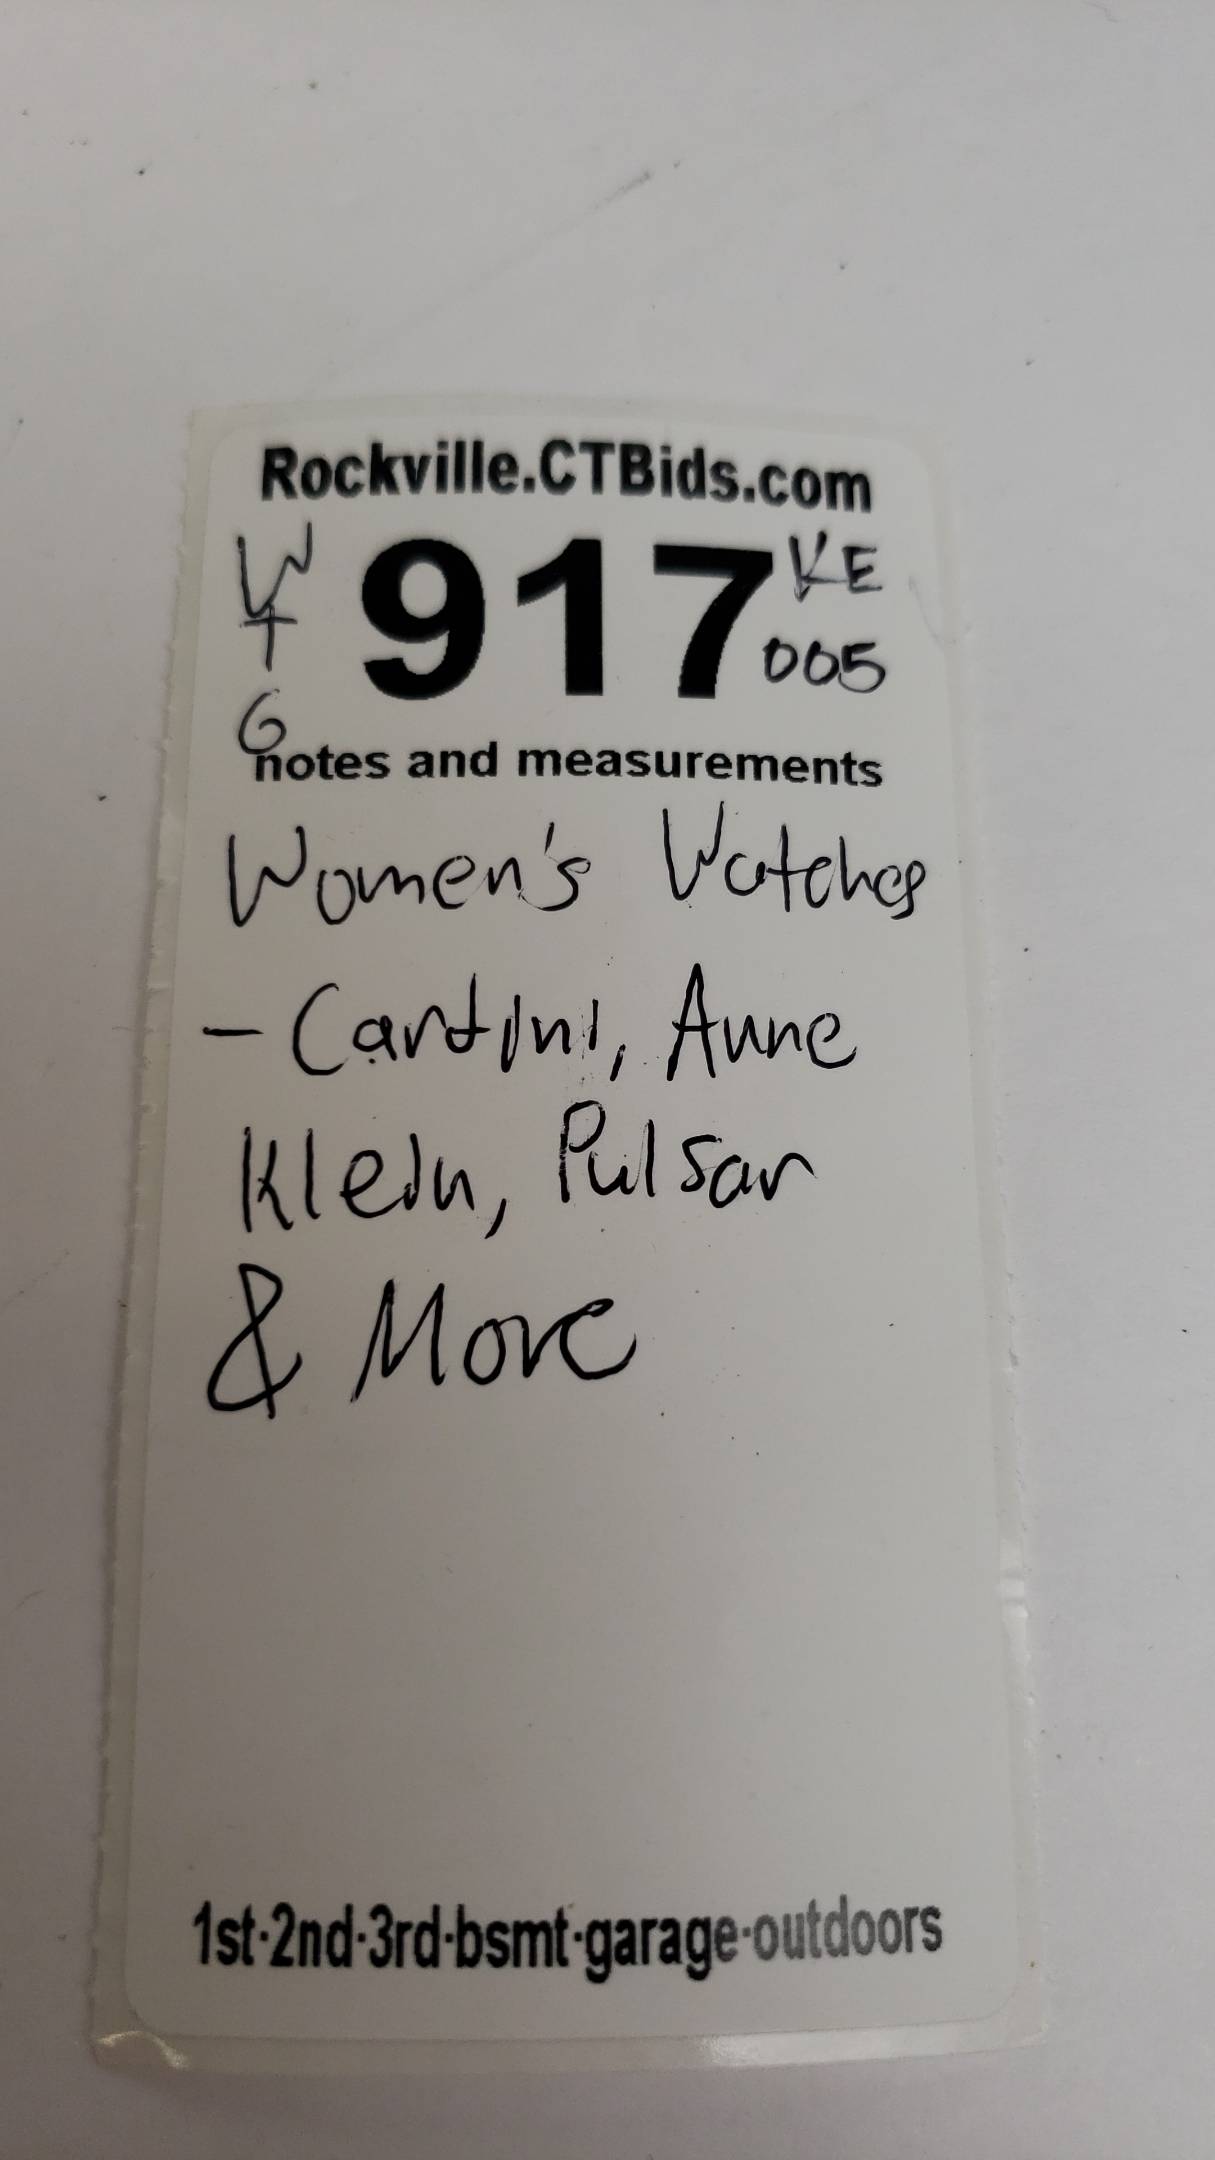 Rockville.CTBids.com
W 917 KE
T 005
G
notes and measurements
Women's Watches
- Cartini, Anne
Klein, Pulsar
& More
1st·2nd·3rd·bsmt·garage·outdoors